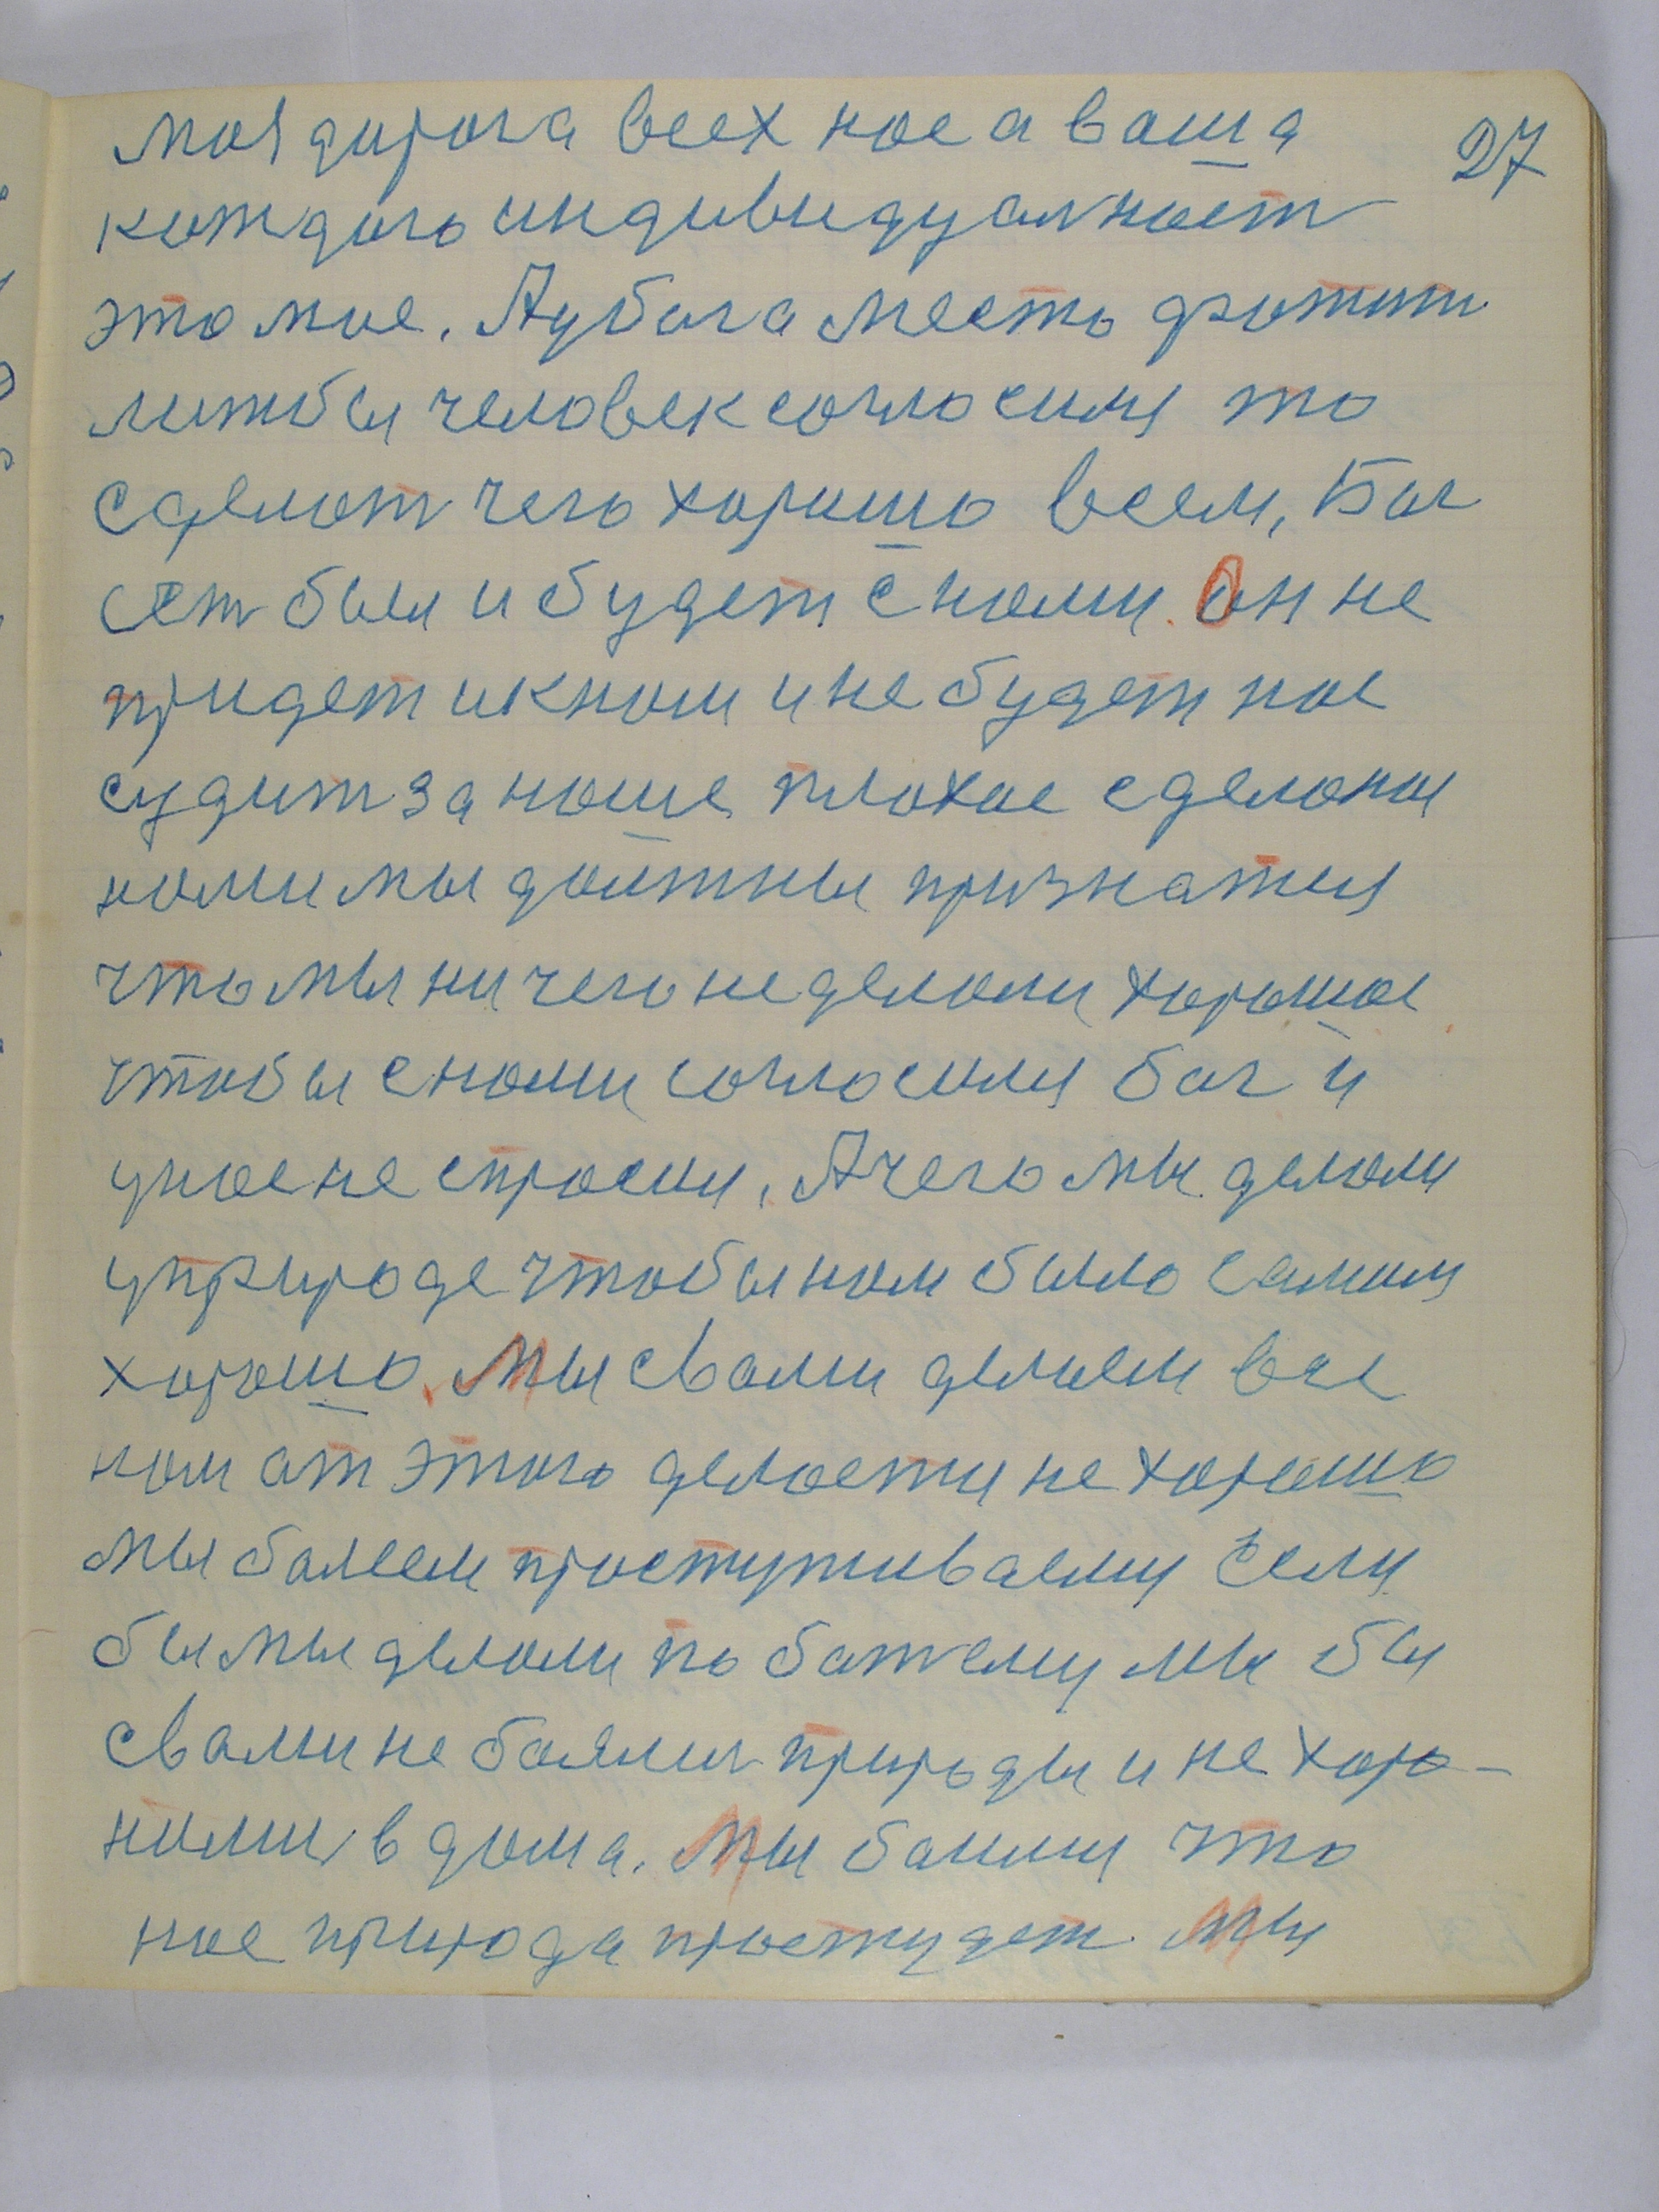 27
моя дорога всех нас а ваша
каждого индивидуалност
это мое. А у бога место хватит
лижбы человек согласился то
сделат чего хорошо всем, Бог
ест был и будет с нами. Он не
придет и к нам и не будет нас
судит за наше плохое сделоные
нами мы должны признатся
что мы ни чего не делали хорошое
чтобы с нами согласился бог и
у нас не спросил, А чего мы делали
у природе чтобы нам было самим
хорошо. Мы с вами делаем все
нам от этого делается не хорошо
мы болеем простуживаемся Если
бы мы делали по божему мы бы
с вами не боялис природы и не хоро-
нили в дома. Мы боимся что
нас природа простудет. Мы